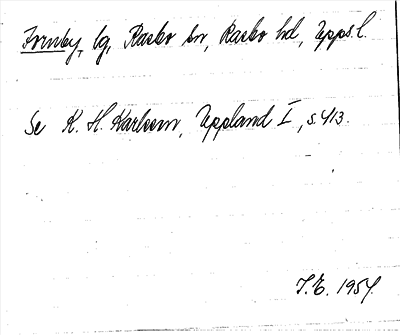 Fornby, by, Rasbo sn, Rasbo hd, Upps. l.
Se K. H. Karlsson, Uppland I, s. 413.
T. E. 1954.